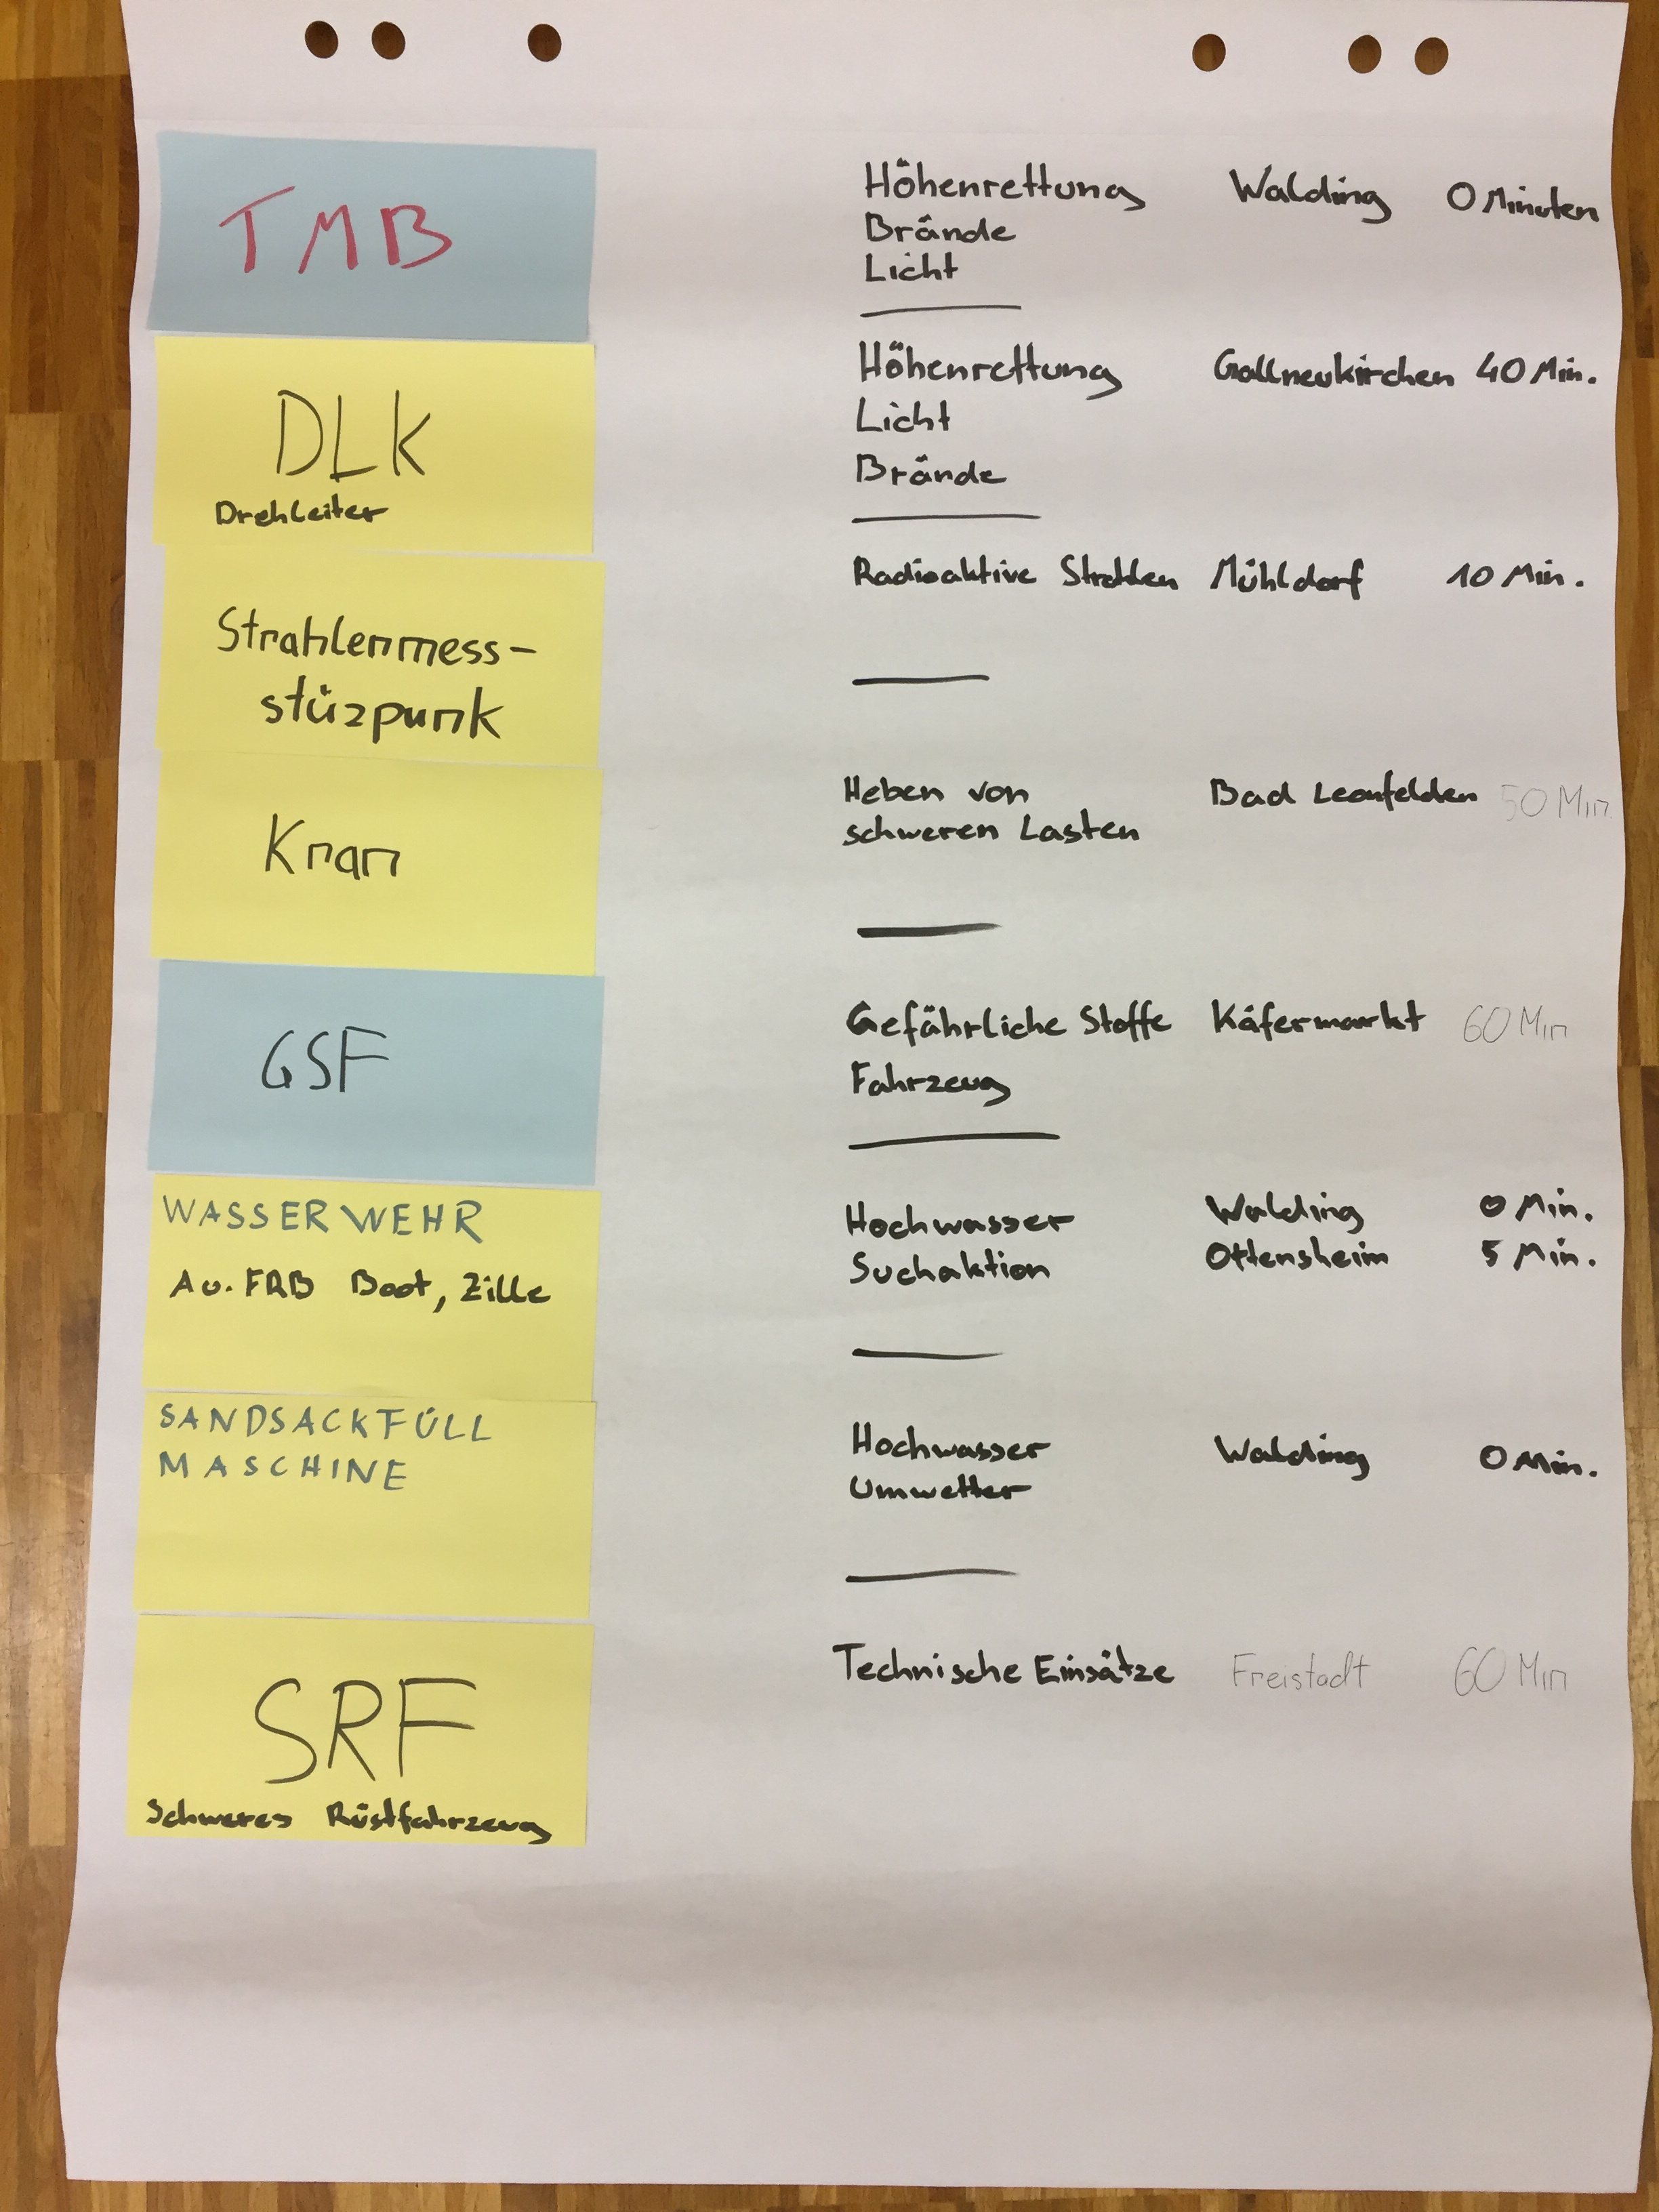 TMB
Höhenrettung Walding 0 Minuten
Brände
Licht
DLK
Drehleiter
Höhenrettung Gallneukirchen 40 Min.
Licht
Brände
Strahlenmess-
stüzpunk
Radioaktive Mühldorf 10 Min.
Kran
Heben von Bad Leonfelden 50 Min
schweren Lasten
GSF
Gefährliche Stoffe Käfermarkt 60 Min
Fahrzeug
WASSERWEHR
A u. FRB Boot, Zille
Hochwasser Walding 0 Min.
Suchaktion Ottensheim 5 Min.
SANDSACKFÜLL
MASCHINE
Hochwasser Walding 0 Min.
Umwetter
SRF
Schweres Rüstfahrzeug
Technische Einsätze Freistadt 60 Min